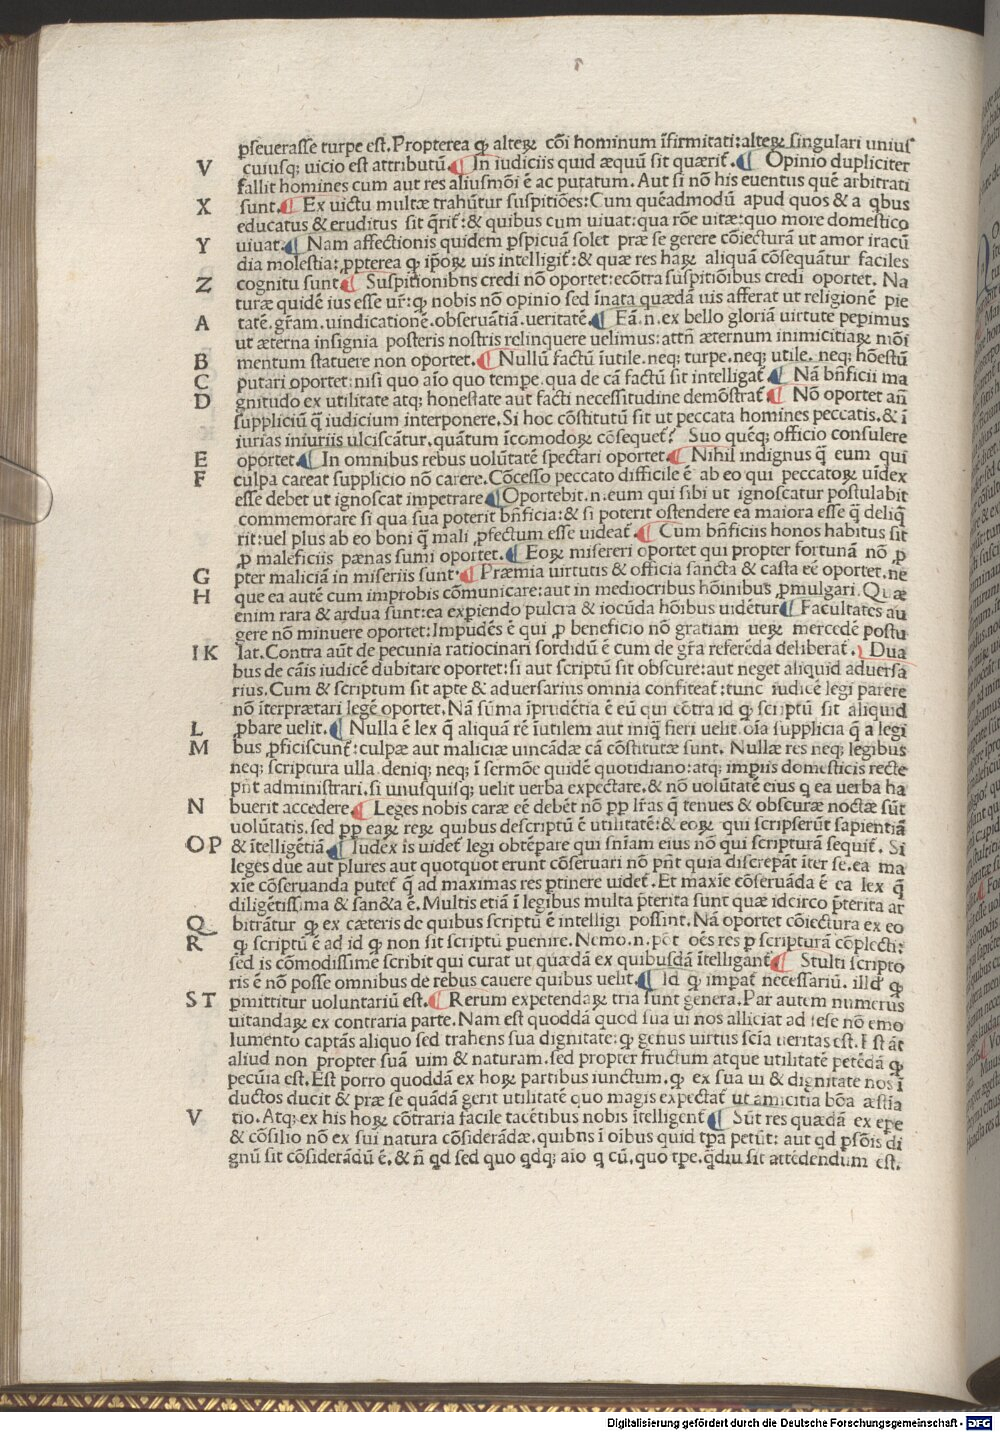 ꝑseuerasse turpe est. Propterea ꝙ alteꝝ cõi hominum ĩfirmitati: alteꝝ singulari unius
V cuiusq; uicio est attributũ. ¶ In iudiciis quid æquũ sit quærit᷑. ¶ Opinio dupliciter
fallit homines cum aut res aliusmõi ẽ ac putatum. Aut si nõ his euentus quẽ arbitrati
X sunt. ¶ Ex uictu multæ trahũtur suspitiões: Cum quẽadmodũ apud quos & a qbus
educatus & eruditus sit q̃rit᷑: & quibus cum uiuat: qua rõe uitæ: quo more domestico
Y uiuat. ¶ Nam affectionis quidem ꝑspicuã solet præ se gerere cõiecturã ut amor iracũ
dia molestia: ꝓpterea ꝙ ip̃oꝝ uis intelligit᷑: & quæ res haꝝ aliquã cõsequãtur faciles
Z cognitu sunt. ¶ Suspitionibns credi nõ oportet: ecõtra suspitiõibus credi oportet. Na
turæ quidẽ ius esse ur᷑: ꝙ nobis nõ opinio sed ĩnata quædã uis afferat ut religionẽ pie
A tatẽ. gr̃am. uindicationẽ. obseruãtiã. ueritatẽ. ¶ Eã .n. ex bello gloriã uirtute pepimus
ut æterna insignia posteris nostris relinquere uelimus: attñ æternum inimicitiaꝝ mõi
B mentum statuere non oportet. ¶ Nullũ factũ ĩutile. neq; turpe. neq; utile. neq; hõestũ
C putari oportet: nisi quo aĩo quo tempe. qua de cã factũ sit intelligat᷑ ¶ Nã bñficii ma
D gnitudo ex utilitate atq; honestate aut facti necessitudine demõstrat᷑ ¶ Nõ oportet añ
suppliciũ q̃ iudicium interponere. Si hoc cõstitutũ sit ut peccata homines peccatis. & ĩ
iurias iniuriis ulciscãtur. quãtum ĩcomodoꝝ cõsequet᷑? Suo quẽq; officio consulere
E oportet. ¶ In omnibus rebus uolũtatẽ spectari oportet. ¶ Nihil indignus q̃ eum qui
F culpa careat supplicio nõ carere. Cõcesso peccato difficile ẽ ab eo qui peccatoꝝ uĩdex
esse debet ut ignoscat impetrare ¶ Oportebit .n. eum qui sibi ut ignoscatur postulabit
commemorare si qua sua poterit bñficia: & si poterit ostendere ea maiora esse q̃ deliq̃
rit: uel plus ab eo boni q̃ mali ꝓfectum esse uideat᷑. ¶ Cum bñficiis honos habitus sit
ꝓ maleficiis pænas sumi oportet. ¶ Eoꝝ misereri oportet qui propter fortunã nõ ꝓ
G pter maliciã in miseriis sunt. ¶ Præmia uirtutis & officia sancta & casta eẽ oportet. ne
H que ea autẽ cum improbis cõmunicare: aut in mediocribus hõinibus ꝓmulgari. Quæ
enim rara & ardua sunt: ea expiendo pulcra & iocũda hõibus uidẽtur ¶ Facultates au
gere nõ minuere oportet: Impudẽs ẽ qui ꝓ beneficio nõ gratiam ueꝝ mercedẽ postu
I K lat. Contra aũt de pecunia ratiocinari sordidũ ẽ cum de gr̃a referẽda deliberat᷑. Dua
bus de cãis iudicẽ dubitare oportet: si aut scriptũ sit obscure: aut neget aliquid aduersa
rius. Cum & scriptum sit apte & aduersarius omnia confiteat᷑: tunc iudicẽ legi parere
nõ ĩterprætari legẽ oportet. Nã sũma ĩprudẽtia ẽ eũ qui cõtra id ꝙ scriptũ sit aliquid
L ꝓbare uelit. ¶ Nulla ẽ lex q̃ aliquã rẽ ĩutilem aut miq̃ fieri uelit. oĩa supplicia q̃ a legi
M bus ꝓficiscunt᷑: culpæ aut maliciæ uincãdæ cã cõstitutæ sunt. Nullæ res neq; legibus
neq; scriptura ulla. deniq; neq; ĩ sermõe quidẽ quotidiano: atq; impiis domesticis recte
pñt administrari. si unusquisq; uelit uerba expectare. & nõ uolũtatẽ eius q ea uerba ha
N buerit accedere ¶ Leges nobis caræ eẽ debẽt nõ pp lr̃as q̃ tenues & obscuræ noctæ sũt
uolũtatis. sed pp eaꝝ reꝝ quibus descriptũ ẽ utilitatẽ: & eoꝝ qui scripserũt sapientiã
O P & ĩtelligẽtiã. ¶ Iudex is uidet᷑ legi obtẽpare qui sñiam eius nõ qui scripturã sequit᷑. Si
leges due aut plures aut quotquot erunt cõseruari nõ pñt quia discrepãt ĩter se. ea ma
xie cõseruanda putet᷑ q̃ ad maximas res ꝑtinere uidet᷑. Et maxĩe cõseruãda ẽ ea lex q̃
diligẽtissima & sancta ẽ. Multis etiã ĩ legibus multa p̃terita sunt quæ idcirco p̃terita ar
Q bitrãtur ꝙ ex cæteris de quibus scriptũ ẽ intelligi possint. Nã oportet cõiectura ex eo
R ꝙ scriptũ ẽ ad id ꝙ non sit scriptũ ꝑuenire. Nemo .n. põt oẽs res ꝑ scripturã cõplecti:
sed is cõmodissimẽ scribit qui curat ut quædã ex quibusdã ĩtelligant᷑ ¶ Stulti scripto
ris ẽ nõ posse omnibus de rebus cauere quibus uelit. ¶ Id ꝙ impat᷑ necessariũ. illd᷑ ꝙ
S T ꝑmittitur uoluntariũ est. ¶ Rerum expetendaꝝ tria sunt genera. Par autem numerus
uitandaꝝ ex contraria parte. Nam est quoddã quod sua ui nos alliciat ad sese nõ emo
lumento captãs aliquo sed trahens sua dignitate: ꝙ genus uirtus scĩa ueritas est. Est ãt
aliud non propter suã uim & naturam. sed propter fructum atque utilitatẽ petẽdã ꝙ
pecũia est. Est porro quoddã ex hoꝝ partibus iunctum. ꝙ ex sua ui & dignitate nos ĩ
ductos ducit & præ se quãdã gerit utilitatẽ quo magis expectat᷑ ut amicitia bõa æstia
V tio. Atq; ex his hoꝝ cõtraria facile tacẽtibus nobis ĩtelligent᷑ ¶ Sũt res quædã ex epe
& cõsilio nõ ex sui natura cõsiderãdæ. quibns ĩ oĩbus quid tp̃a petũt: aut qd ꝑsõis di
gnũ sit cõsiderãdũ ẽ. & ñ qd sed quo qdq; aio q cũ. quo tpe. q̃diu sit attẽdendum est.
Digitalisierung gefördert durch die Deutsche Forschungsgemeinschaft - DFG